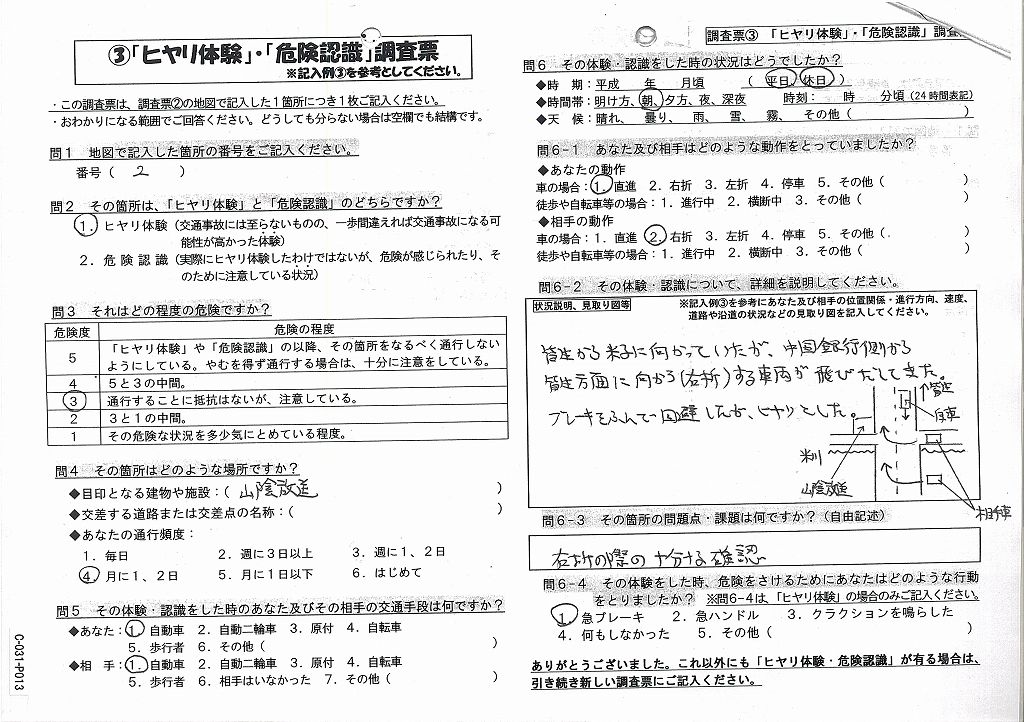 ③「ヒヤリ体験」・「危険認識」調査票
※記入例③を参考としてください。
・この調査票は、調査票②の地図で記入した1箇所につき1枚ご記入ください。
・おわかりになる範囲でご回答ください。どうしても分らない場合は空欄でも結構です。
問1 地図で記入した箇所の番号をご記入ください。
番号( 2 )
問2 その箇所は、「ヒヤリ体験」と「危険認識」のどちらですか?
1.ヒヤリ体験(交通事故には至らないものの、一歩間違えれば交通事故になる可
能性が高かった体験)
2.危険認識(実際にヒヤリ体験したわけではないが、危険が感じられたり、そ
のために注意している状況)
問3 それはどの程度の危険ですか?
危険度 危険の程度
5 「ヒヤリ体験」や「危険認識」の以降、その箇所をなるべく通行しない
ようにしている。やむを得ず通行する場合は、十分に注意をしている。
4 5と3の中間。
3 通行することに抵抗はないが、注意している。
2 3と1の中間。
1 その危険な状況を多少気にとめている程度。
問4 その箇所はどのような場所ですか?
◆目印となる建物や施設:( 山陰放送 )
◆交差する道路または交差点の名称:( )
◆あなたの通行頻度:
1.毎日 2.週に3日以上 3.週に1、2日
4.月に1、2日 5.月に1日以下 6.はじめて
問5 その体験・認識をした時のあなた及びその相手の交通手段は何ですか?
◆あなた:1.自動車 2.自動二輪車 3.原付 4.自転車
5.歩行者 6.その他( )
◆相 手:1.自動車 2.自動二輪車 3.原付 4.自転車
5.歩行者 6.相手はいなかった 7.その他( )
C-031-P013
調査票③ 「ヒヤリ体験」・「危険認識」調査
問6 その体験・認識をした時の状況はどうでしたか?
◆時 期:平成 年 月頃 ( 平日、休日 )
◆時間帯:明け方、朝、夕方、夜、深夜 時刻: 時 分頃(24時間表記)
◆天 候:晴れ、 曇り、 雨、 雪、 霧、 その他( )
問6-1 あなた及び相手はどのような動作をとっていましたか?
◆あなたの動作
車の場合:1.直進 2.右折 3.左折 4.停車 5.その他( )
徒歩や自転車等の場合:1.進行中 2.横断中 3.その他( )
◆相手の動作
車の場合:1.直進 2.右折 3.左折 4.停車 5.その他( )
徒歩や自転車等の場合:1.進行中 2.横断中 3.その他( )
問6-2 その体験・認識について、詳細を説明してください。
状況説明、見取り図等 ※記入例③を参考にあなた及び相手の位置関係・進行方向、速度、
道路や沿道の状況などの見取り図を記入してください。
皆生から米子に向かっていたが、中国銀行側から
皆生方面に向かう(右折)する車両が飛びだしてきた。
ブレーキをふんで回避したが、ヒヤリとした。
皆生
自車
米川
山陰放送
相手車
問6-3 その箇所の問題点・課題は何ですか?(自由記述)
右折の際の十分な確認
問6-4 その体験をした時、危険をさけるためにあなたはどのような行動
をとりましたか? ※問6-4は、「ヒヤリ体験」の場合のみご記入ください。
1.急ブレーキ 2.急ハンドル 3.クラクションを鳴らした
4.何もしなかった 5.その他( )
ありがとうございました。これ以外にも「ヒヤリ体験・危険認識」が有る場合は、
引き続き新しい調査票にご記入ください。